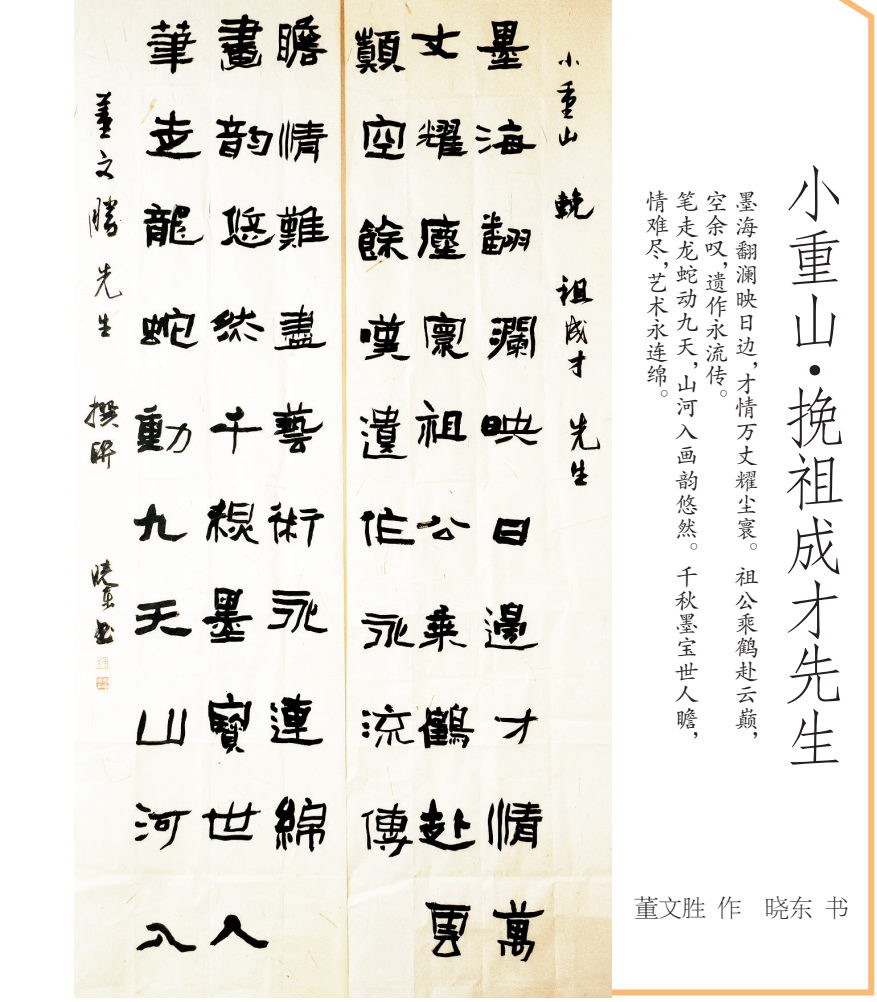 小重山·挽祖成才先生
墨海翻澜映日边，才情万丈耀尘寰。祖公乘鹤赴云巅，
空余叹，遗作永流传。
笔走龙蛇动九天，山河入画韵悠然。千秋墨宝世人瞻，
情难尽，艺术永连绵。
董文胜 作 晓东 书
小重山 輓 祖成才 先生
墨海翻瀾映日邊才情萬
丈耀塵寰祖公乘鶴赴雲
顛空餘嘆遺作永流傳
筆走龍蛇動九天山河入
畫韵悠然千秋墨寶世人
瞻情難盡藝術永連綿
董文勝先生 撰聯 曉東書